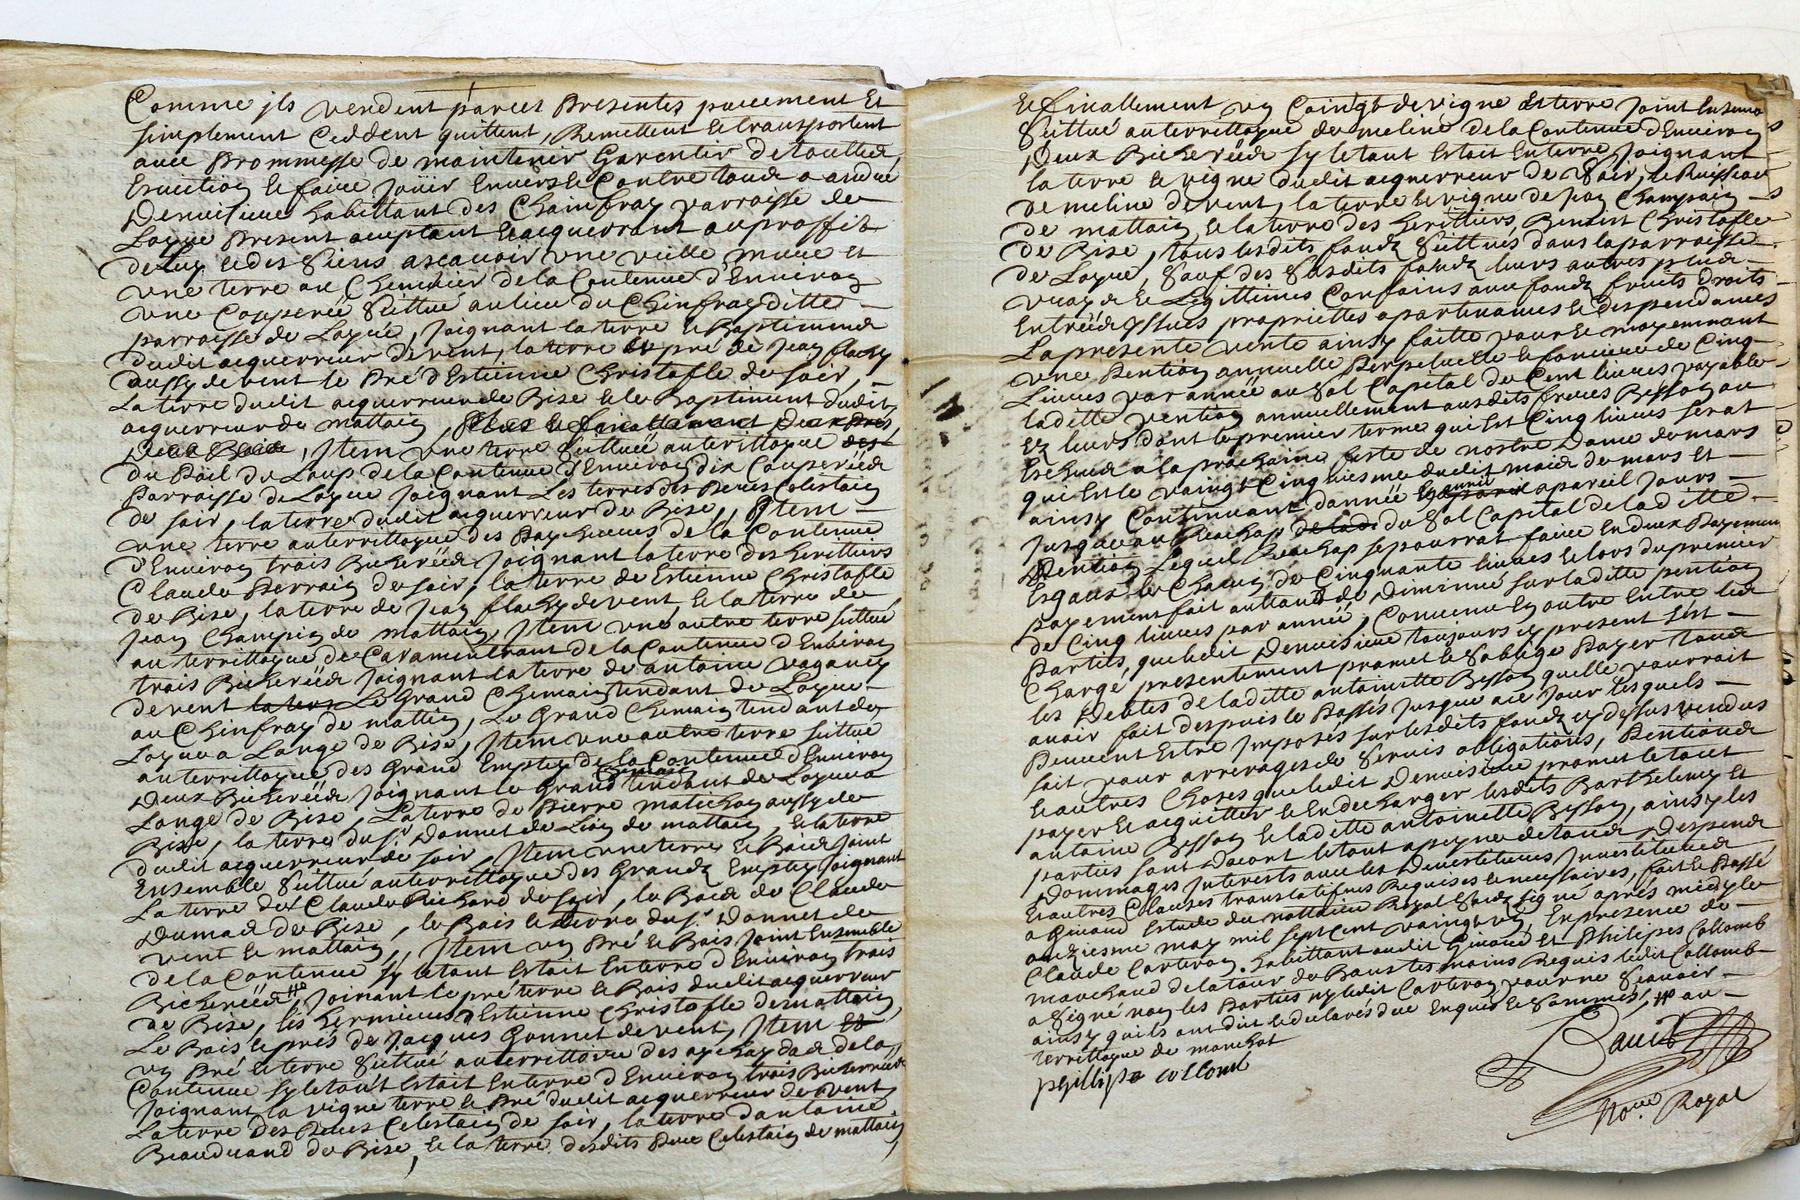 Comme jls vendent parces presentes purement Et
simplement Ceddent quittent, Remettent Et transportent
avec prommesse de maintenir Garentir de
Evuction et faire jouir Envers Et Contre tous a andré
Denuisieux habittant des Chainfray parroisse de
Layue present acceptant Et acquerrant auproffit
de Luy et des siens ascavoir une vielle mure et
une terre au Chenuier de la Contenue d'Environ
une Couppeé scittué au lieu du Chinfray ditte
parroisse de Layue, joignant la terre et Baptiment
dudit acquerreur de vent, la terre et pré de jean flachy
aussy de vent le Pré d'Estienne Christofle de soir,
la terre dudit acquerreur de Bise et le Baptiment dudit
acquerreur du mattain,
, Jtem une terre scittué au territtoyre
du Poil du Loup de la Contenue d'Environ dix Couppeéés
Parroisse de Layue joignant Les terres des Peres Celestain
de soir, la terre dudit acquerreur de Bise, Jtem
une terre au territtoyre des de la Contenue
d'Environ trois Bichereéés joignant la terre des herittiers
Claude Perrain de soir, la terre de Estienne Christofle
de Bise, la terre de jean flachy de vent, et la terre de
jean Champin de mattain, Jtem une autre terre scittué
au territtoyre de Caramentrant de la Contenue d'Environ
trois Bichereéés joignant la terre de antoine vaganey
de vent la terre Le Grand Chemain tendant de Layue
au Chinfray de mattin, Le Grand Chemain tendant de
Layue a Lange de Bise, Jtem une autre terre scittué
au territtoyre des Grand Empley de la Contenue d'Environ
Deux Bichereéés joignant le Grand Chemain tendant de Layue a
Lange de Bise, La terre de Pierre matichon aussy de
Bise, la terre du sr. Donnet de Lion de mattain, et la terre
dudit acquerreur de soir, Jtem une terre et Bois joint
Ensemble scittué au territtoyre des Grandz Empley joignant
La terre de Claude Richard de soir, le Bois de Claude
Dumas de Bise, le Bois et terre du sr. Donnet de
vent et mattain, Jtem un Pré et Bois joint Ensemble
de la Contenue sy le tout Estoit En terre d'Environ trois
Bichereéés #, joinant le pré terre et Bois dudit acquerreur
de Bise, les hermieures d'Estienne Christofle de mattain,
Le Bois et prés de Jacques Gonnet de vent, Jtem Et
un Pré et terre scittué au territtoyre des de la
Contenue sy le tout Estoit En terre d'Environ trois Bichereéés
joignant la vigne terre et Pré dudit acquerreur de vent
La terre Des Peres Celestain de soir, la terre d'antoine
Beauduand de Bise, et la terre desdits Pere Celestain de mattain,
Et finallement un Coingt de vigne et terre joint Ensemb
scittué au territtoyre de meline de la Contenue d'Environ
Deux Bichereéés sy le tout Estoit En terre joignant
la terre et vigne dudit acquerreur de soir, le Ruisseau
de meline de vent, la terre et vigne de jean Champain
de mattain, et la terre des herittiers, Benoist Christofle
de Bise, tous lesdits fondz scittués dans la parroisse
de Layue, sauf des susdits fondz leurs autres plus
vrays et Legittimes Confains avec fondz fruits Droits
Entreéés yssues proprietées apartenances et Despendances
La presente vente ainsy faitte pour et moyennant
une Pention annuelle Perpetuelle et fonciere de Cinq
Livres par année au sol Capital de Cent livres payable
laditte pention annuellement ausdits freres Bisson ou
es leurs dont le premier terme qui Est Cinq livres serat
Escheut a la prochaine feste de nostre Dame de mars
qui Est le vaingt Cinquiesme dudit mois de mars et
ainsy Continuant d'anneé En année apareil jours
jusqu'au Reachap du sol Capital de laditte
Pention Lequel Reachap se pourrat faire En deux Payemens
Esgaux et Chacun de Cinquante livres et lors du premier
payement fait autant de Diminué sur laditte pention
de Cinq livres par année, Convenu En outre Entre les
Parties, que ledit Denuisieux toujours cy present s'est
Chargé presentement promet et s'oblige Payer tous
les Debtes de laditte antoinette Bisson qu'elle pourrait
avoir fait despuis le Passés jusque a ce jour lesquels
Peuvent Estre jmposés sur lesdits fondz cy dessus vendus
soit pour arrerages de servis obligations, Pentions
Et autres Choses que ledit Denuisieux promet le tout
payer Et acquitter et En decharger lesdits Barthelemy Et
antoine Bisson et laditte antoinette Bisson, ainsy les
parties sont d'acort le tout a peyne de tous Despends
Dommages jnterests avec les Devestitures jnvestitures
Et autres Clauses translatifves Requises et necessaires, fait et Passé
a Givaud Estude du nottaire Royal soubz signé après midy le
onziesme may mil sept Cent vaingt un, En presence de
Claude Carteron habittant audit Givaud Et Philipes Collomb
marchand de la tour de Requis ledit Collomb
a signé non les Parties ny ledit Carteron pour ne scavoir
ainsy qu'ils ont dit et declarés düe Enquis Et sommés, # au
territtoyre de manchat
phillipe collomb
No.re Royal